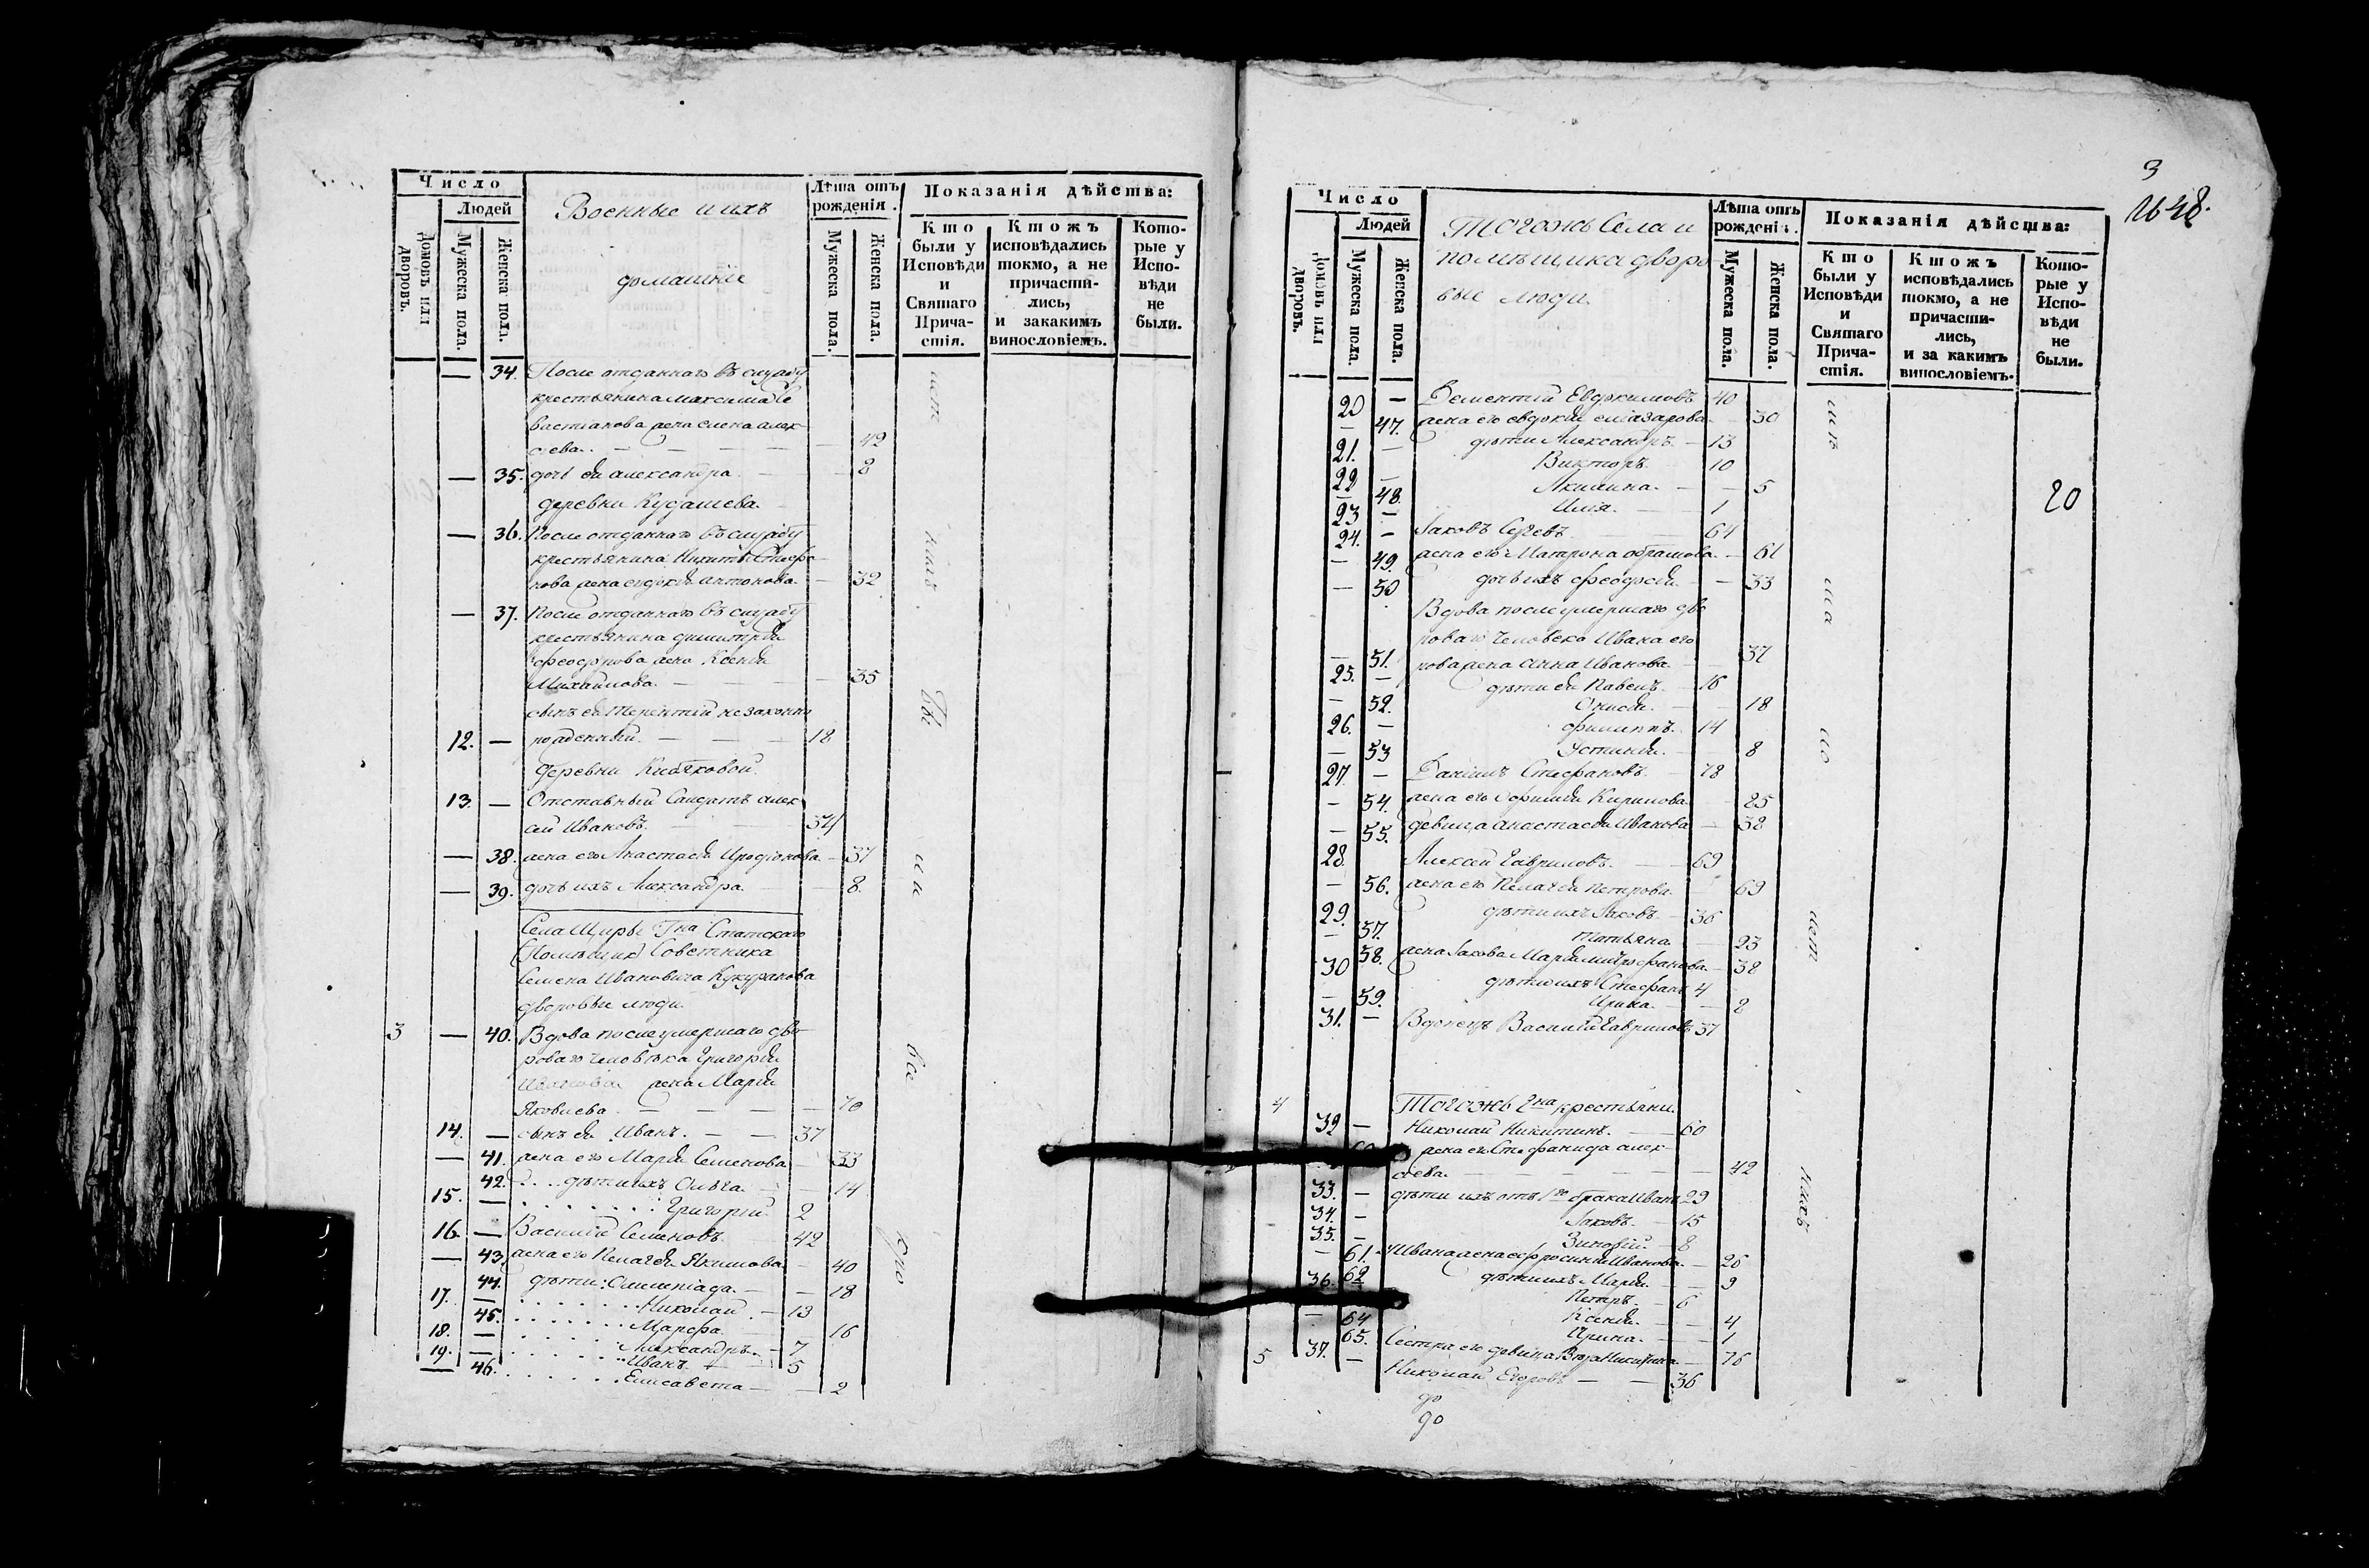 Число
Людей
Домовъ или дворовъ.
Мужеска пола.
Женска пола.
Военные и ихъ
домашніе
Лѣта отъ рожденія.
Мужеска пола.
Женска пола.
Показанія дѣйства:
Кто были у Исповѣди и Святаго Причастія.
Ктожъ исповѣдались токмо, а не причастились, и закакимъ винословіемъ.
Которые у Исповѣди не были.
— 34. После отданнаго въ службу
крестьянина Максима Се
вастіанова жена Елена алек
сеева. — — 42
— 35. дочь ея александра. — 8
деревни Кудашева.
— 36. После отданнаго въ службу
крестьянина Никиты Стефа
нова жена евдокія антонова — 32
— 37. После отданнаго въ службу
крестьянина димитрія
жена Ксенія
Михайлова. — 35
сынъ ея Терентій незаконно
12. — рожденный. — 18
деревни
13. — Отставный Салдатъ алек
сей Ивановъ. 37
— 38. жена его Анастасія Иродіонова — 37
— 39. дочь ихъ Александра — 8.
Села Щирья Гна Статскаго
(Помѣщик) Советника
Семена Ивановича
дворовые люди.
3 — 40. Вдова после умершаго дво
роваго человѣка Григорія
Иванова жена Марія
Яковлева. — 70
14. — сынъ ея Иванъ. — 37
— 41. жена его Марія Семенова — 33
42. дѣти ихъ Ольга. — 14
15. — Григорій. 2
16. — Василій Семеновъ. 42
— 43. жена его Пелагея Якимова — 40
44. дѣти: Олимпіада. — 18
17. — Николай. — 13
45. Марфа. 16
18. — Александръ. — 7
19. — Иванъ. 5
— 46. Елисавета — 2
3
1648.
Число
Людей
Домовъ или дворовъ.
Мужеска пола.
Женска пола.
Тогожъ Села и
помѣщика дворо
вые люди.
Лѣта отъ рожденія.
Мужеска пола.
Женска пола.
Показанія дѣйства:
Кто были у Исповѣди и Святаго Причастія.
Ктожъ исповѣдались токмо, а не причастились, и за какимъ винословіемъ.
Которые у Исповѣди не были.
20 — Дементій Евдокимовъ 40
— 47. жена его евдокія елиазарова — 30
21. — дѣти Александръ. — 13
22 — Викторъ. 10
— 48. Акилина. — 5
23 — Илія. — 1
20
24. — Іаковъ Сергѣевъ. 61
— 49. жена его Матрона абрамова. — 61
— 50 дочь ихъ феодосія — 33
Вдова после умершаго дво
роваго человека Ивана его
— 51. рова жена Анна Иванова. 37
25. — дѣти ея Павелъ. — 16
— 52. Онисія. — 18
26. — филиппъ. — 14
— 53 Устинія. — 8
27. — Даніилъ Стефановъ. 78
— 54. жена его Кирилова. 25
— 55. девица анастасія Иванова — 38
28. Алексей Гавриловъ. — 69
— 56. жена его Пелагея Петрова. 69
29. дѣти ихъ Іаковъ. — 36
— 57. татьяна. — 23
58. жена Іакова Марія митрофанова — 38
30 дѣти ихъ Стефанъ 4
— 59. Ирина. — 2
31. — Вдовецъ Василій Гавриловъ 37
4
Тогожъ Гна крестьяни.
32 — Николай Никитинъ. — 60
жена его Стефанида алек
сеева. — 42
33. — дѣти ихъ отъ 1го брака Иванъ 29
34. — Іаковъ. — 15
35. — Зиновій. — 8
— 61. Ивана жена ефросинія Иванова. — 26
62 дѣти ихъ Марія. — 9
36. Петръ. — 6
— 64 Ксенія. — 4
65. Ирина. — 1
Сестра его девица Вера Никитина — 76
5 37. — Николай Егоровъ — 36